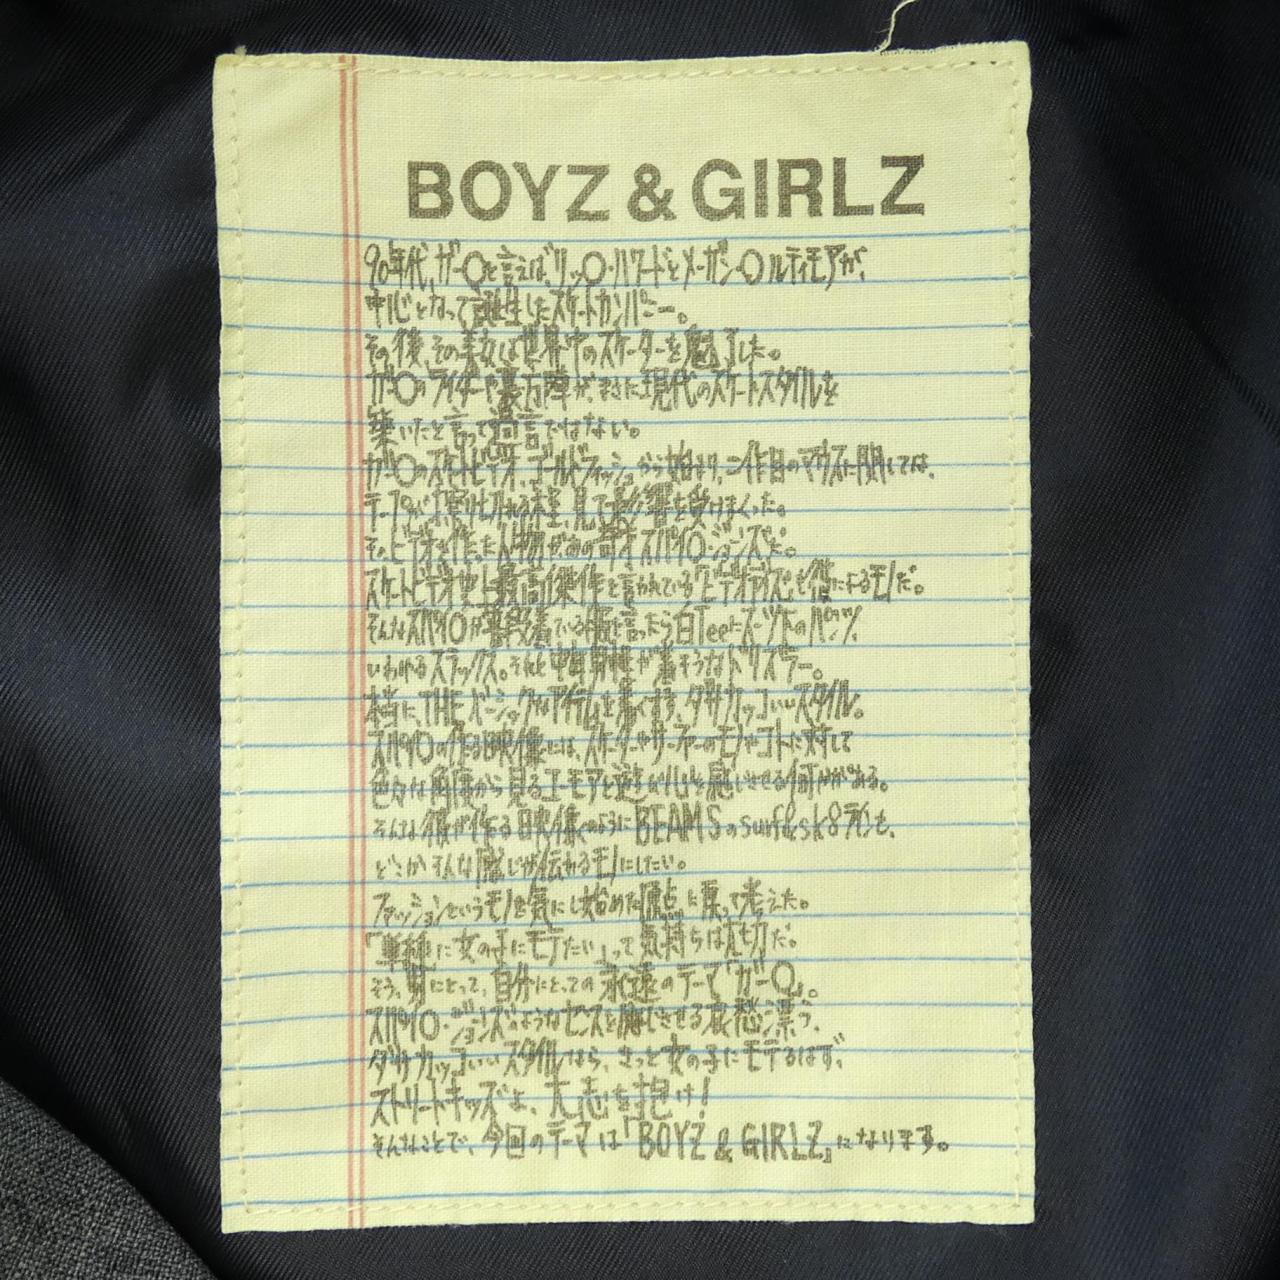 BOYZ & GIRLZ
90年代、ガー〇と言えば、リッ〇・ハワードとメーガン・〇ルティモアが、
中心となって誕生したスケートカンパニー。
その後、その美女は世界中のスケーターを魅了した。
ガ〇のライダーや裏方陣が、まさに現代のスケートスタイルを
築いたと言って過言ではない。
ガ〇のスケートビデオ、ゴールドフィッシュから始まり、二作目のマウスに関しては、
テープが擦り切れる程、見て影響を受けまくった。
そのビデオを作った人物があの奇才スパイ〇・ジョーンズだ。
スケートビデオ史上最高傑作と言われている「ビデオデイズ」も彼によるモノだ。
そんなスパイ〇が普段着ている服と言ったら白Teeにスーツ下のパンツ、
いわゆるスラックス。それと中年男性が着そうなドリズラー。
本当に、THEベーシックなアイテムを着くずす、ダサカッコいいスタイル。
スパイ〇の作る映像には、スケーターやサーファーのモノやコトに対して
色々な角度から見るユーモアと遊び心を感じさせる何かがある。
そんな彼が作る映像のようにBEAMSのsurf&sk8ラインも、
どこかそんな感じが伝わるモノにしたい。
ファッションというモノを気にし始めた原点に戻って考えた。
「単純に女の子にモテたい」って気持ちは大切だ。
そう、男にとって、自分にとっての永遠のテーマ「ガー〇」。
スパイ〇・ジョーンズのようなセンスを感じさせる哀愁漂う、
ダサカッコいいスタイルなら、きっと女の子にモテるはず、
ストリートキッズよ、大志を抱け!
そんなことで、今回のテーマは「BOYZ & GIRLZ」になります。